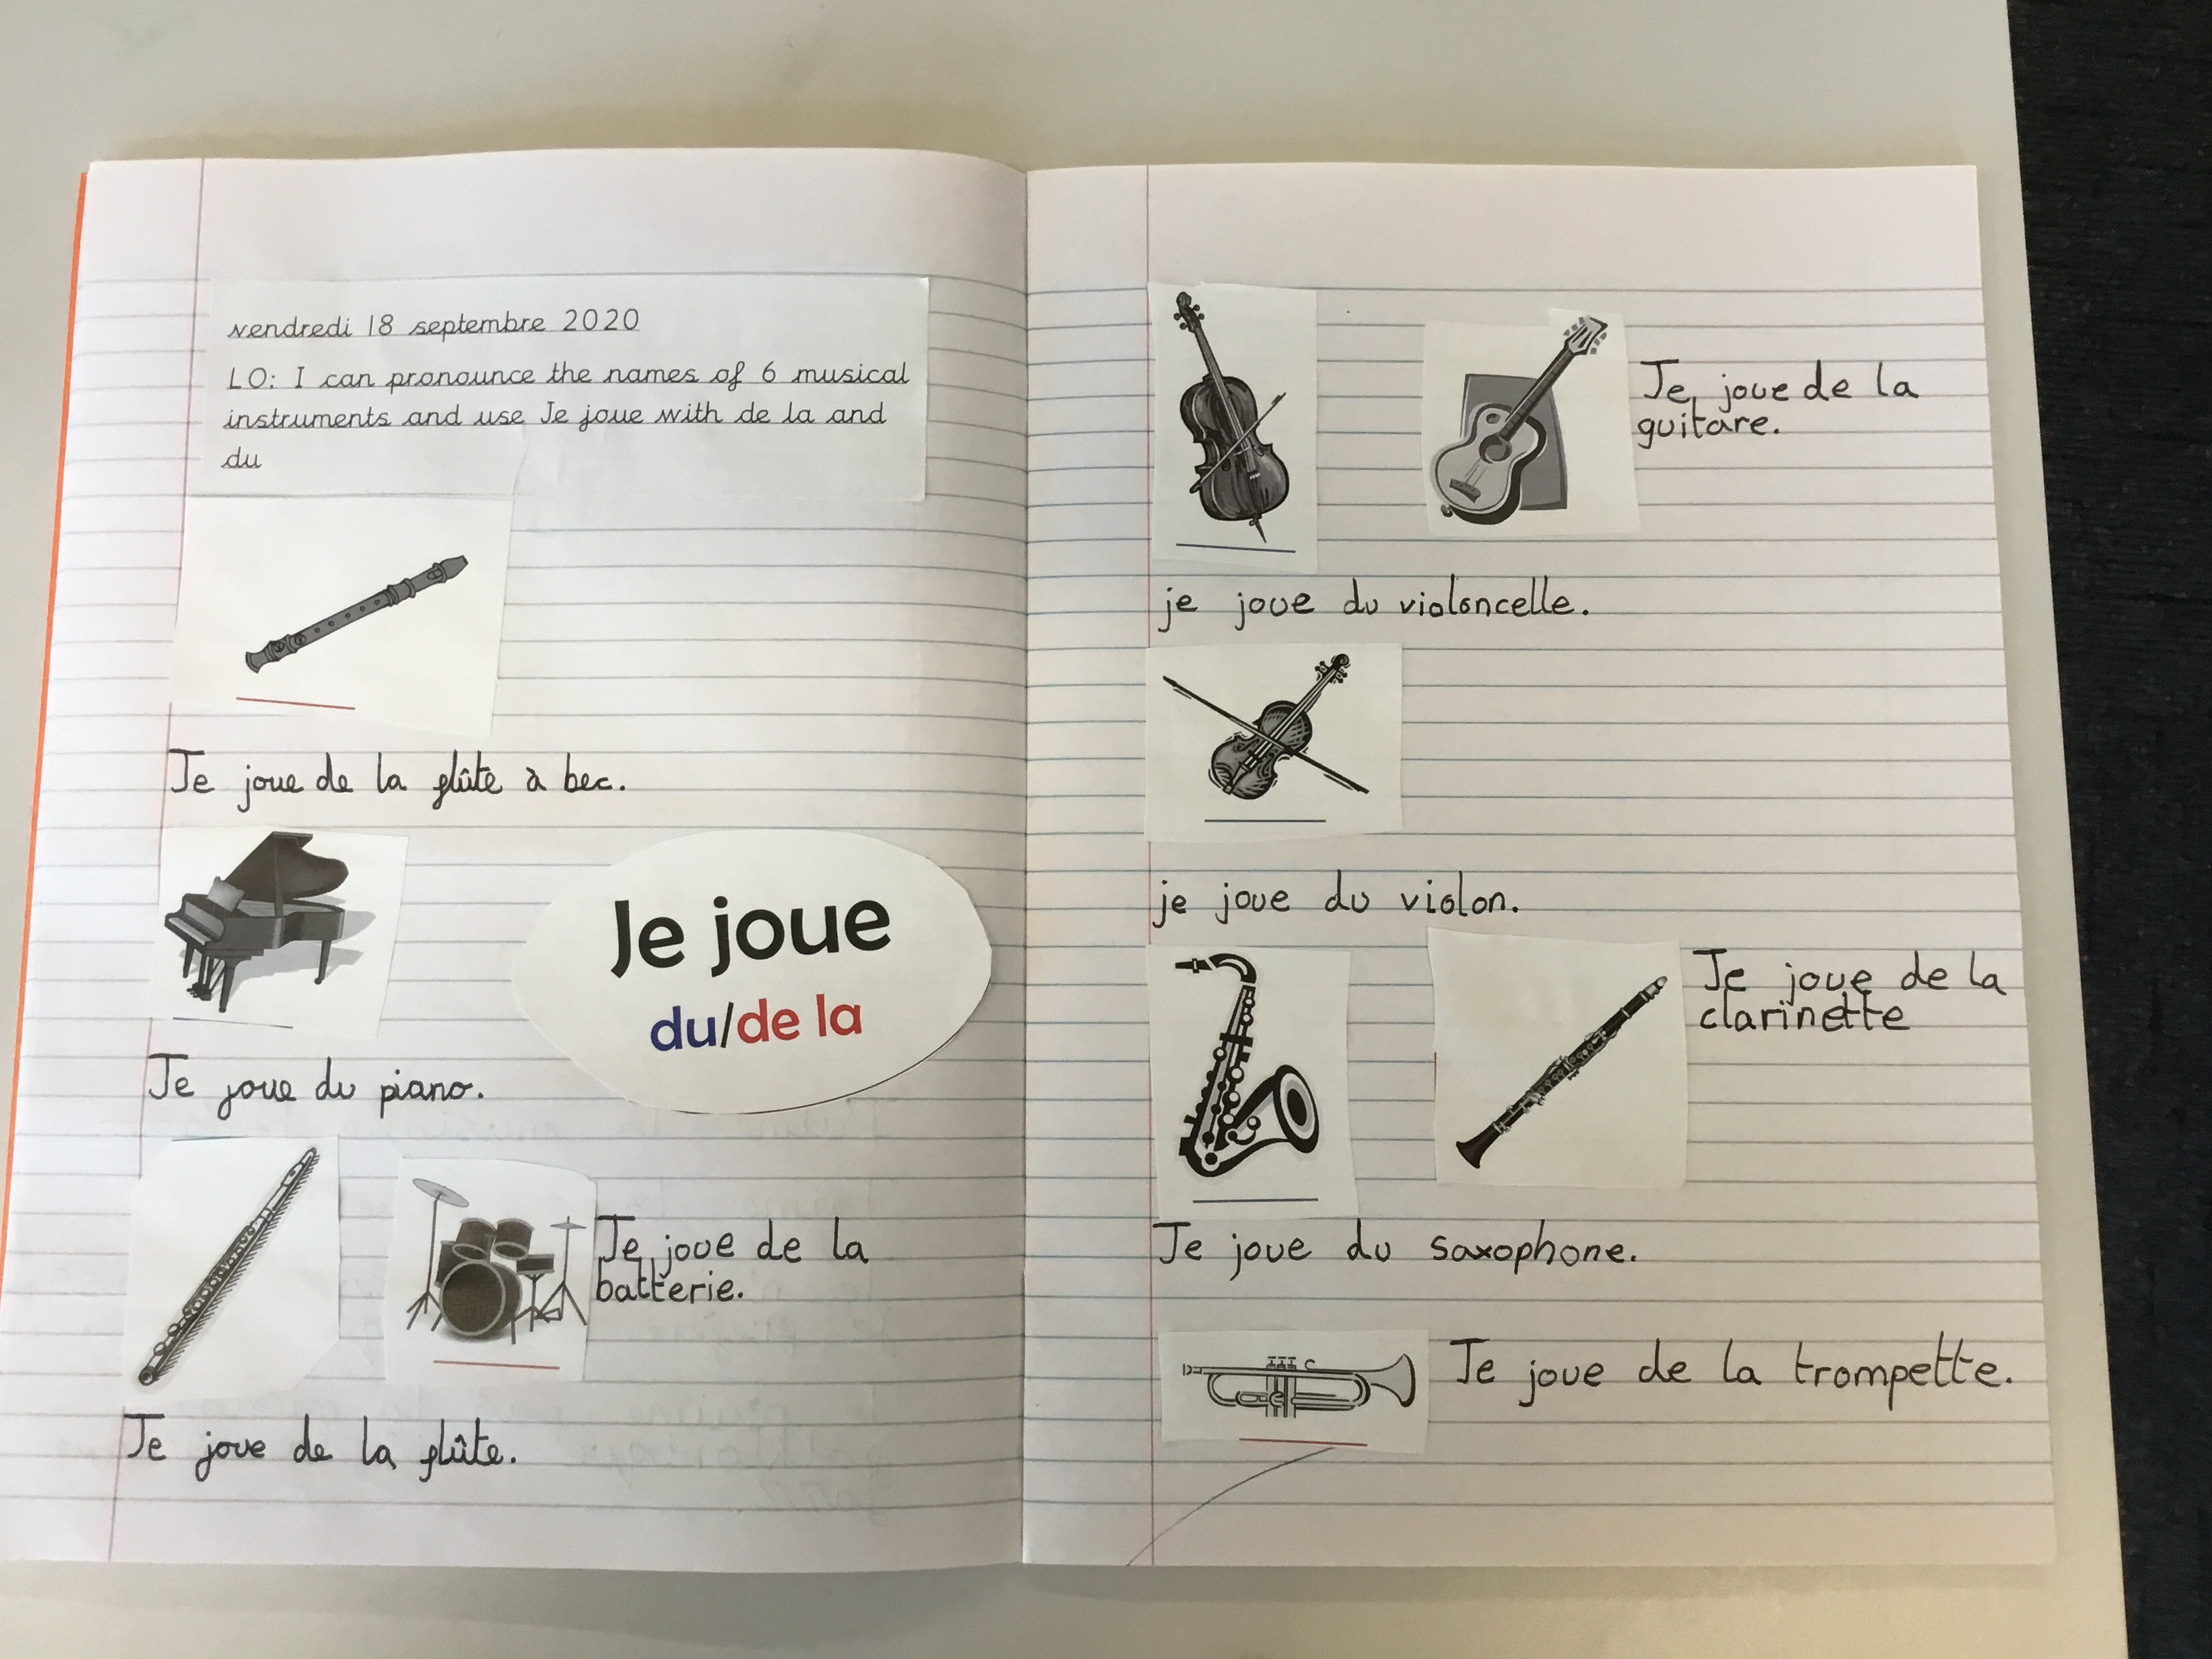 vendredi 18 septembre 2020
LO: I can pronounce the names of 6 musical
instruments and use Je joue with de la and
du
Je joue de la flûte à bec.
Je joue
du/de la
Je joue du piano.
Je joue de la
batterie.
Je joue de la flûte.
Je joue de la
guitare.
je joue du violoncelle.
je joue du violon.
Je joue de la
clarinette
Je joue du saxophone.
Je joue de la trompette.